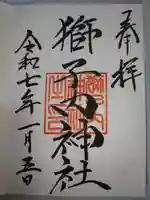 奉拝
獅子神社
令和七年一月五日